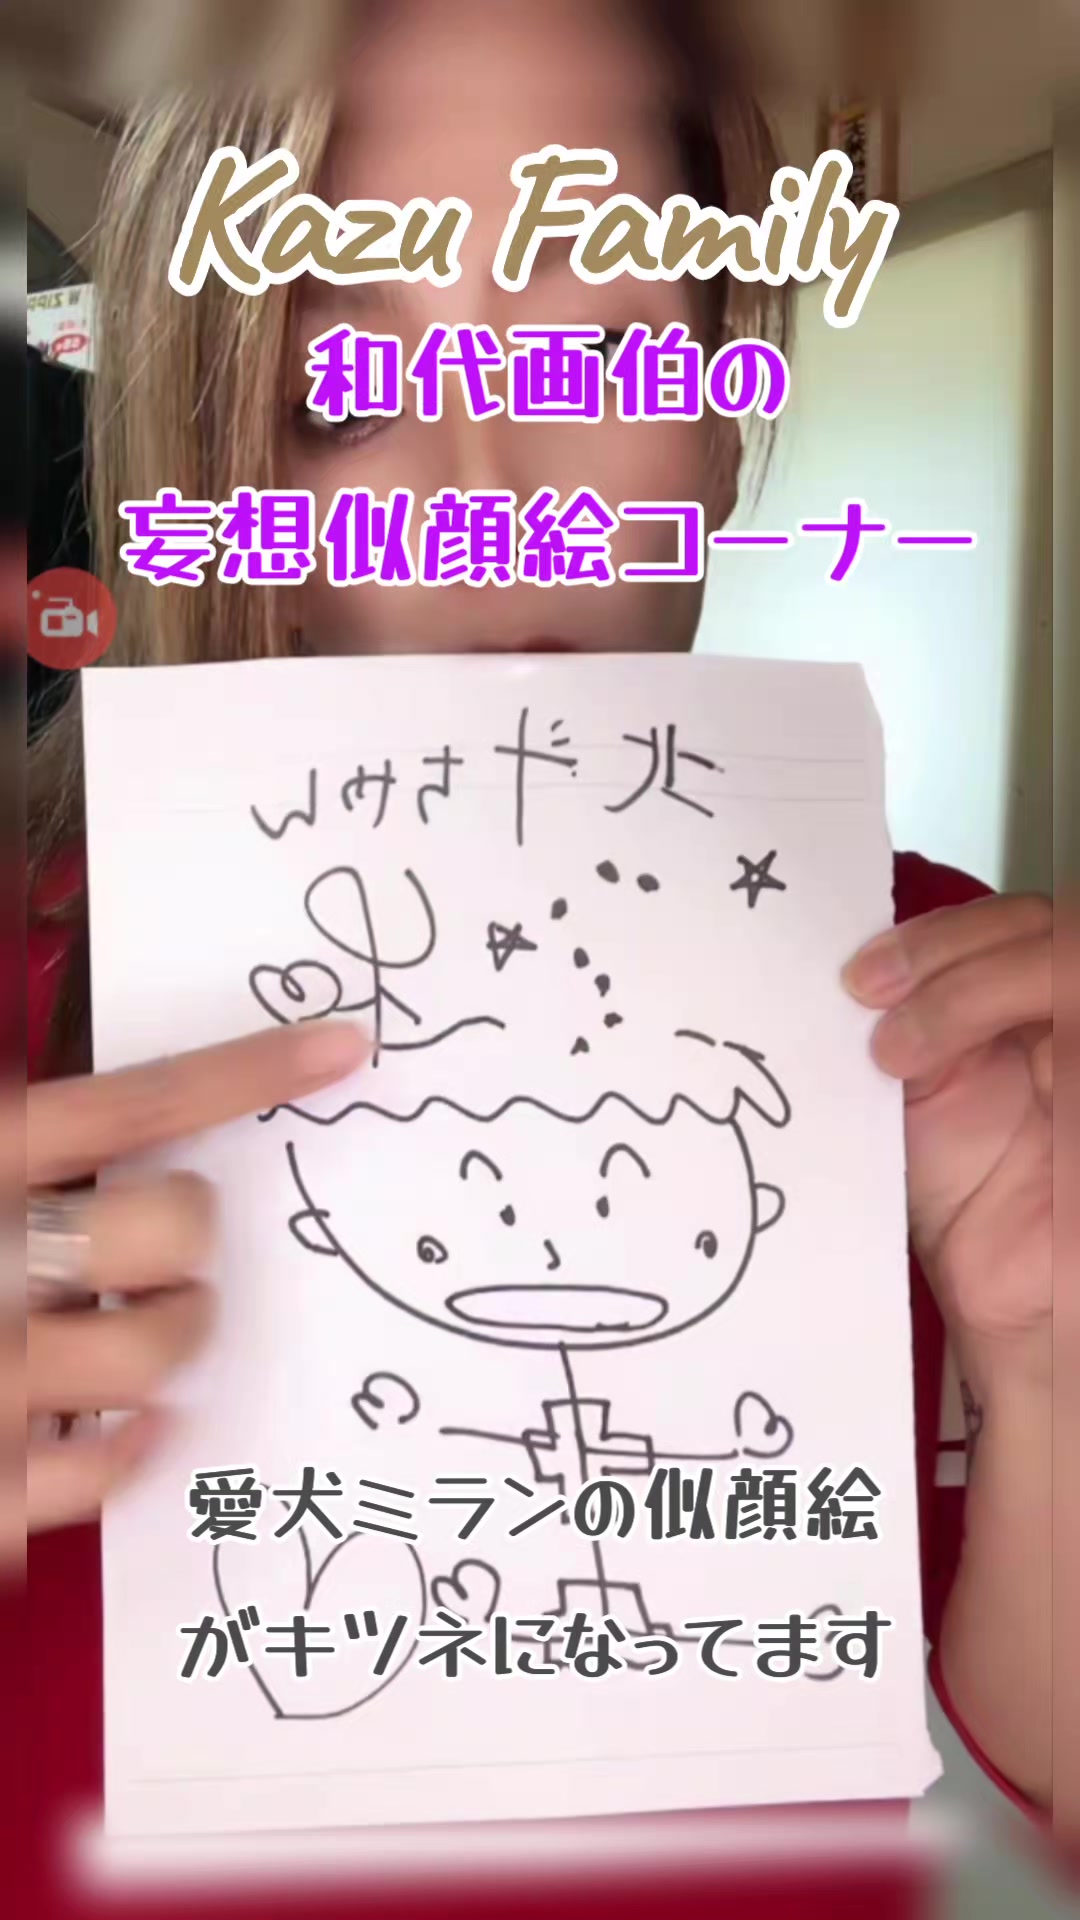 Kazu Family
和代画伯の
妄想似顔絵コーナー
愛犬ミランの似顔絵
がキツネになってます